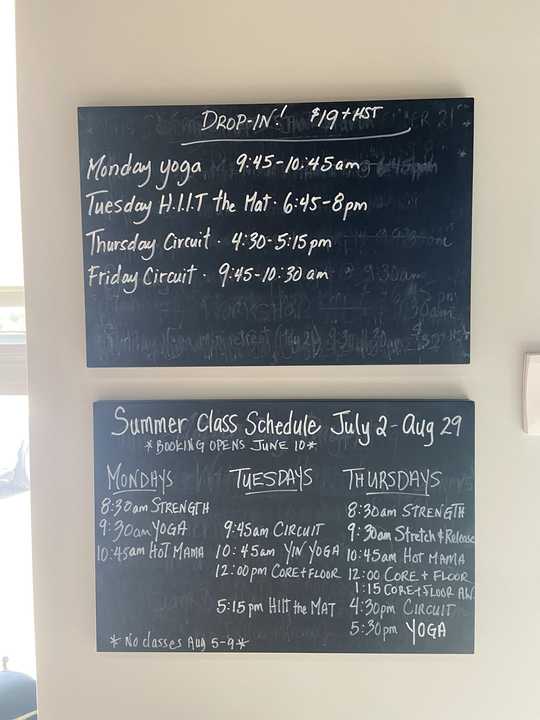 DROP-IN! $19+HST
Monday yoga 9:45-10:45am
Tuesday H.I.I.T the Mat · 6:45-8pm
Thursday Circuit · 4:30-5:15pm
Friday Circuit · 9:45-10:30am
Summer Class Schedule July 2 - Aug 29
*BOOKING OPENS JUNE 10*
MONDAYS TUESDAYS THURSDAYS
8:30am STRENGTH 8:30am STRENGTH
9:30am YOGA 9:45am CIRCUIT 9:30am Stretch & Release
10:45am HOT MAMA 10:45am YIN YOGA 10:45am HOT MAMA
12:00pm CORE+FLOOR 12:00 CORE + FLOOR
1:15 CORE+FLOOR
5:15pm HIIT the MAT 4:30pm CIRCUIT
5:30pm YOGA
* No classes Aug 5-9 *